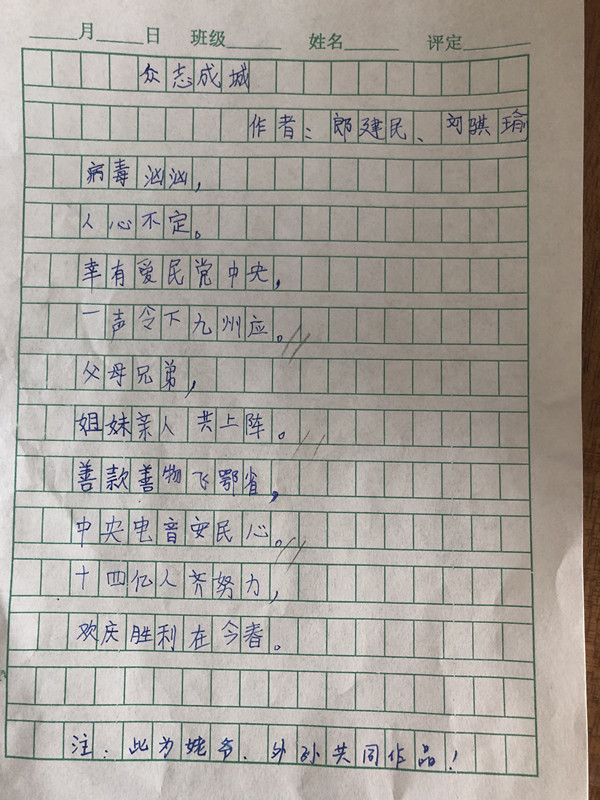 ____月____日 班级______ 姓名______ 评定______
众志成城
作者：郎建民、刘骐瑜
病毒汹汹，
人心不定。
幸有爱民党中央，
一声令下九州应。
父母兄弟，
姐妹亲人共上阵。
善款善物飞鄂省，
中央电音安民心。
十四亿人齐努力，
欢庆胜利在今春。
注：此为姥爷、外孙共同作品！